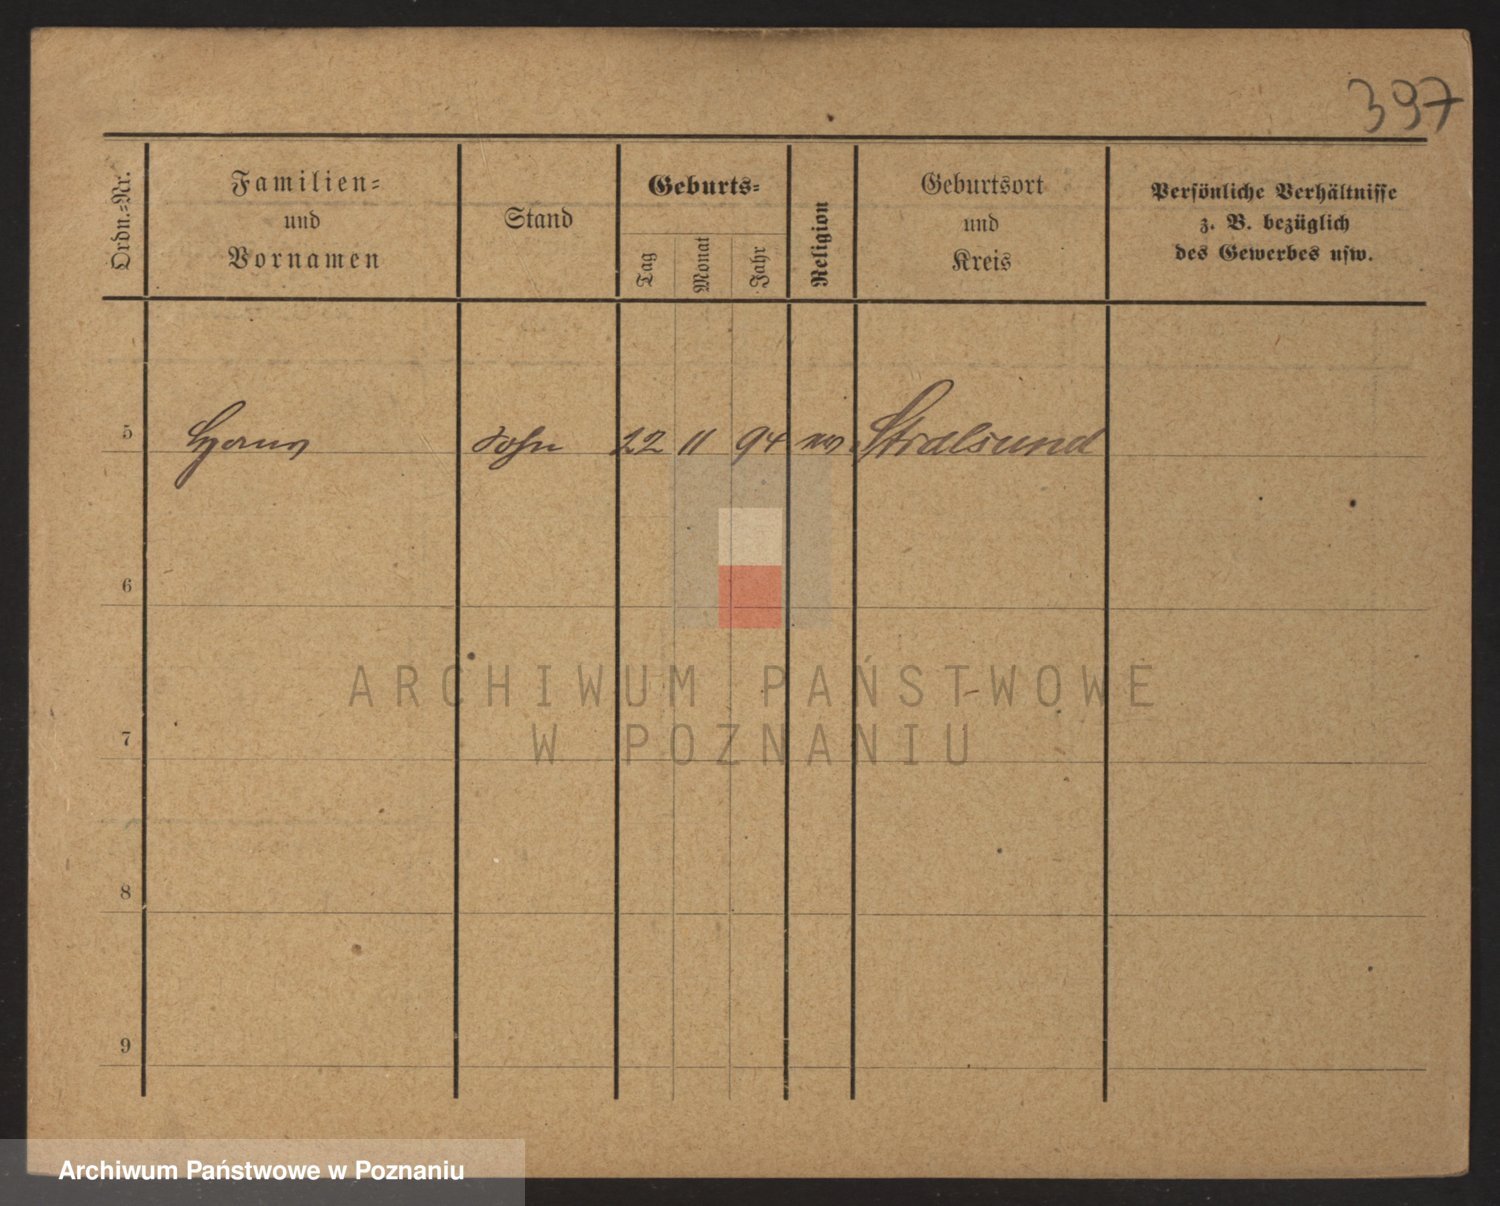 397
Ordn.-Nr.
Familien-
und
Vornamen
Stand
Geburts-
Tag
Monat
Jahr
Religion
Geburtsort
und
Kreis
Persönliche Verhältnisse
z. B. bezüglich
des Gewerbes usw.
5 Hans Sohn 22 11 94 Stralsund
6
7
8
9
ARCHIWUM PAŃSTWOWE
W POZNANIU
Archiwum Państwowe w Poznaniu